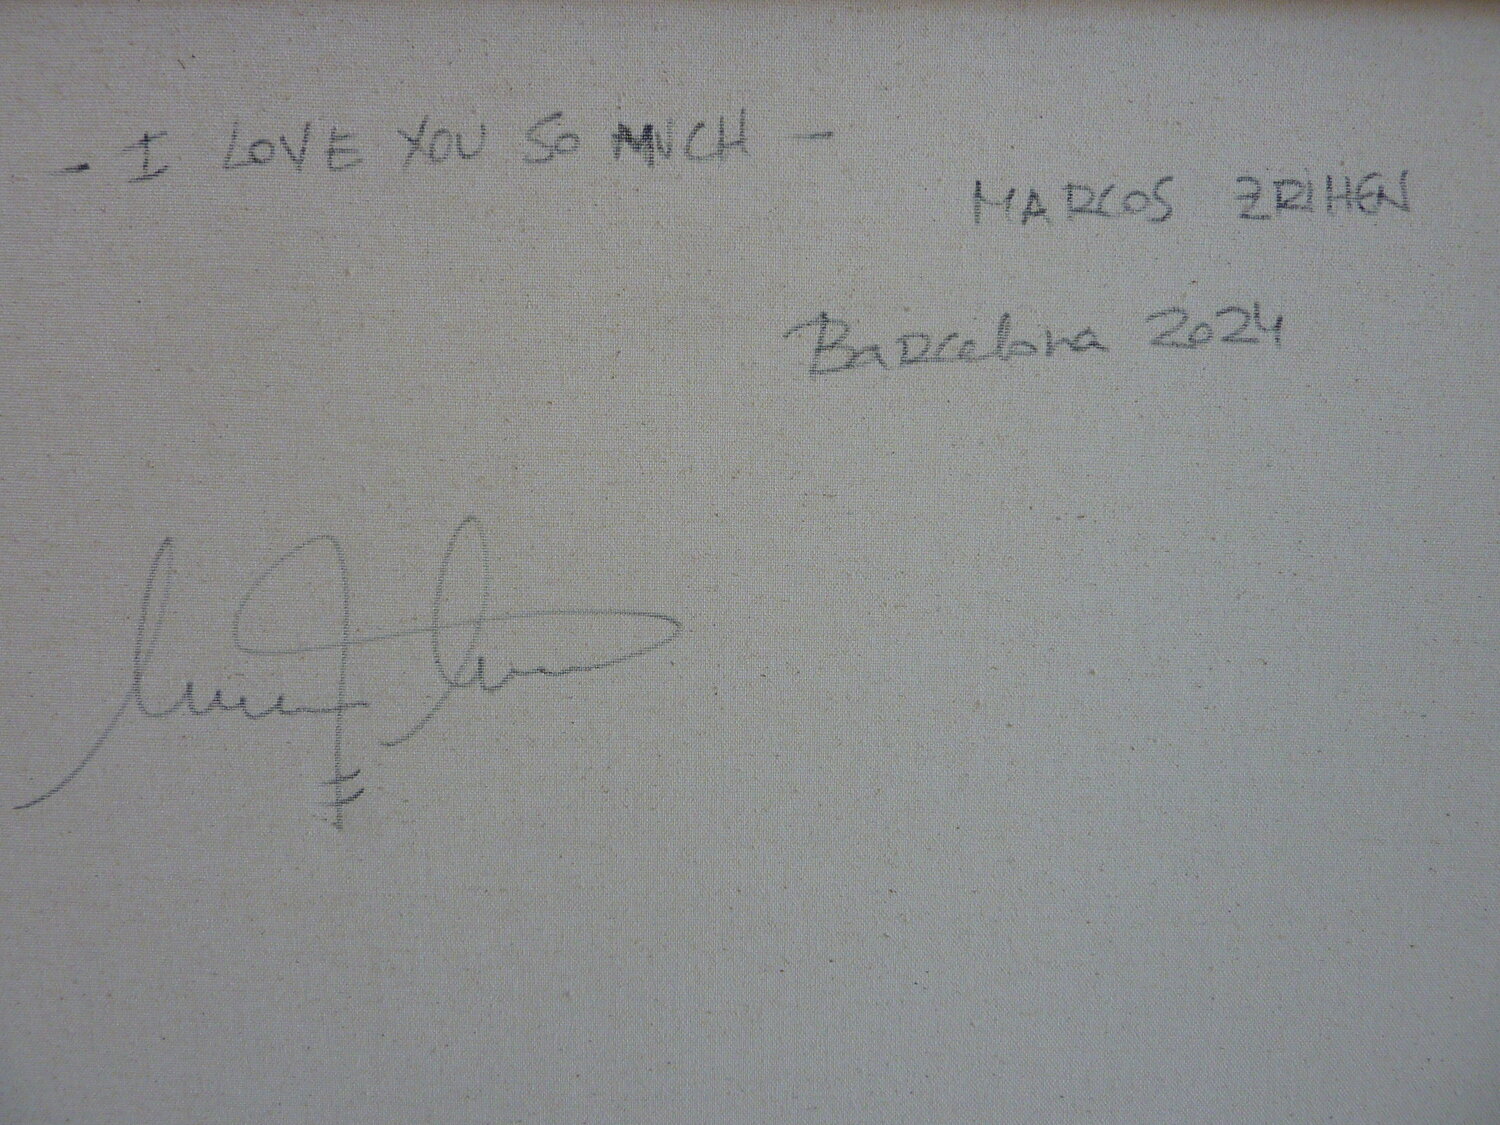 - I LOVE YOU SO MUCH -
MARCOS ZRIHEN
Barcelona 2024